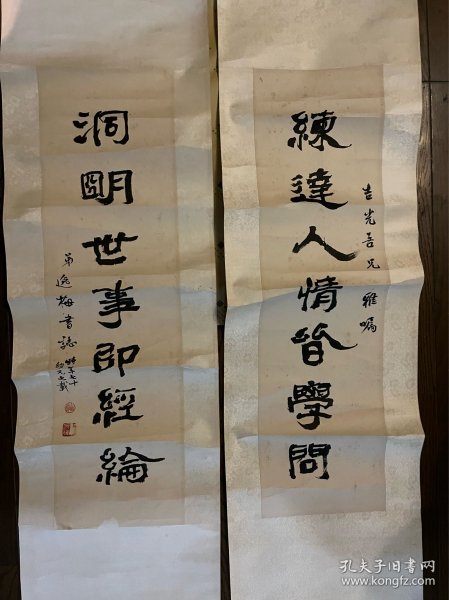 練達人情皆學問
吉光吾兄 雅囑
洞明世事即經綸
弟逸梅書誌
孔夫子旧书网
www.kongfz.com